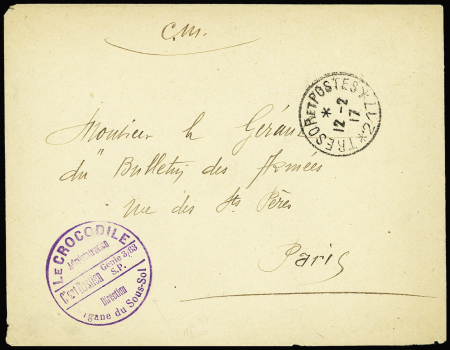 C.M.
TRESOR ET POSTES * 217 *
*
12 - 2
17
Monsieur le Gérant
du Bulletin des Armées
rue des Sts Pères
Paris
LE CROCODILE
Administration
Génie 3/63
S.P.
Direction
gane du Sous-Sol